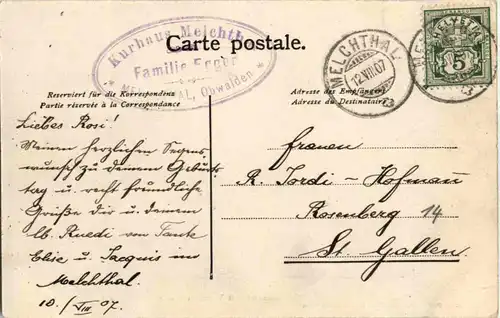 Carte postale.
Kurhaus Melchth
Familie Egger
MELCHTHAL, Obwalden
MELCHTHAL
12.VIII.07
HELVETIA
5
Reserviert für die Korrespondenz
Partie réservée à la Correspondance
Adresse des Empfängers
Adresse du Destinataire
Liebes Rosi!
Meinen herzlichen Segens
wunsch zu deinem Geburts
tag u. recht freundliche
Grüße dir u. deinem
lb. Ruedi von Tante
u. Jacques im
Melchthal.
10./VIII 07.
Frauen
R. Jordi-Hofmann
Rosenberg 14
St. Gallen